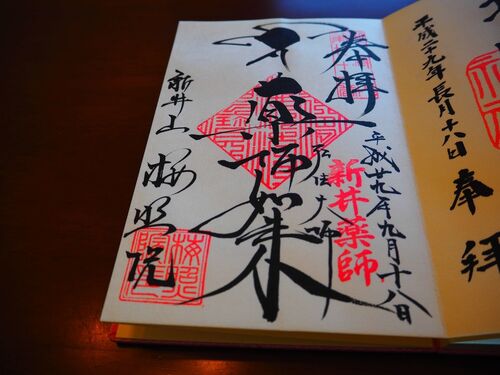 平成二十九年長月十八日
奉拝
奉拝
平成廿九年九月十八日
新井薬師
弘法大師
薬師如来
新井山 梅照院
梅照院